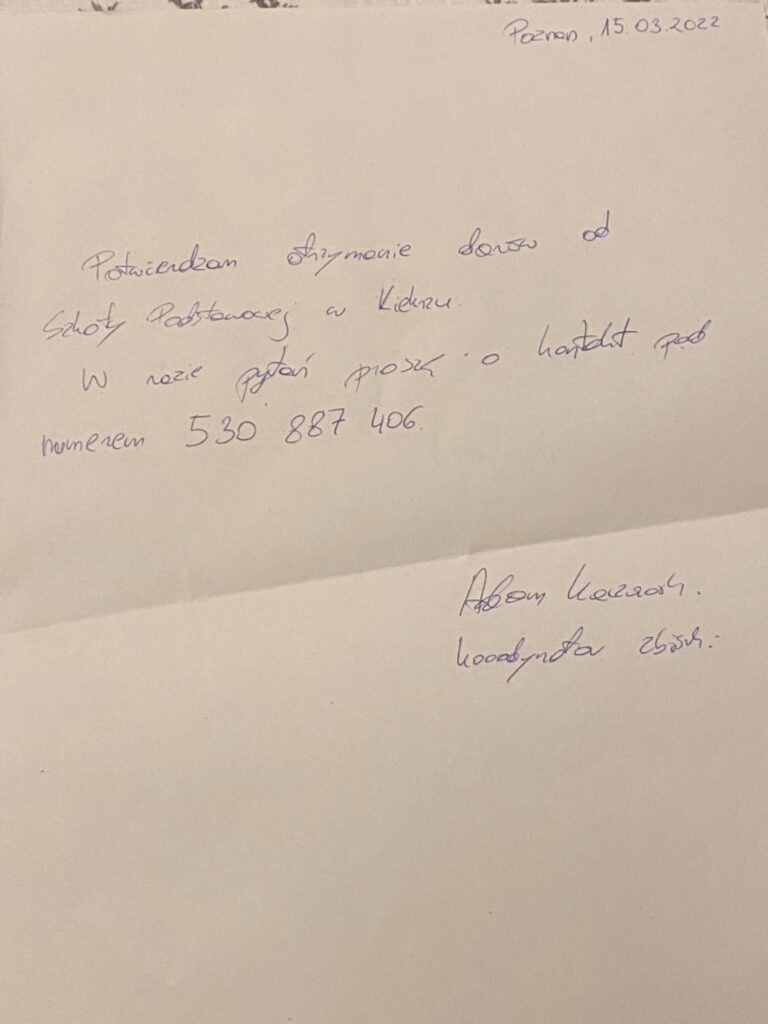 Poznań, 15.03.2022
Potwierdzam otrzymanie darów od
Szkoły Podstawowej w Kiekrzu.
W razie pytań proszę o kontakt pod
numerem 530 887 406.
Adam
koordynator zbiórki